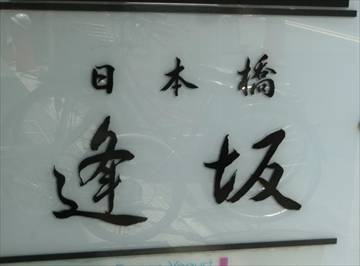 日本橋
逢坂